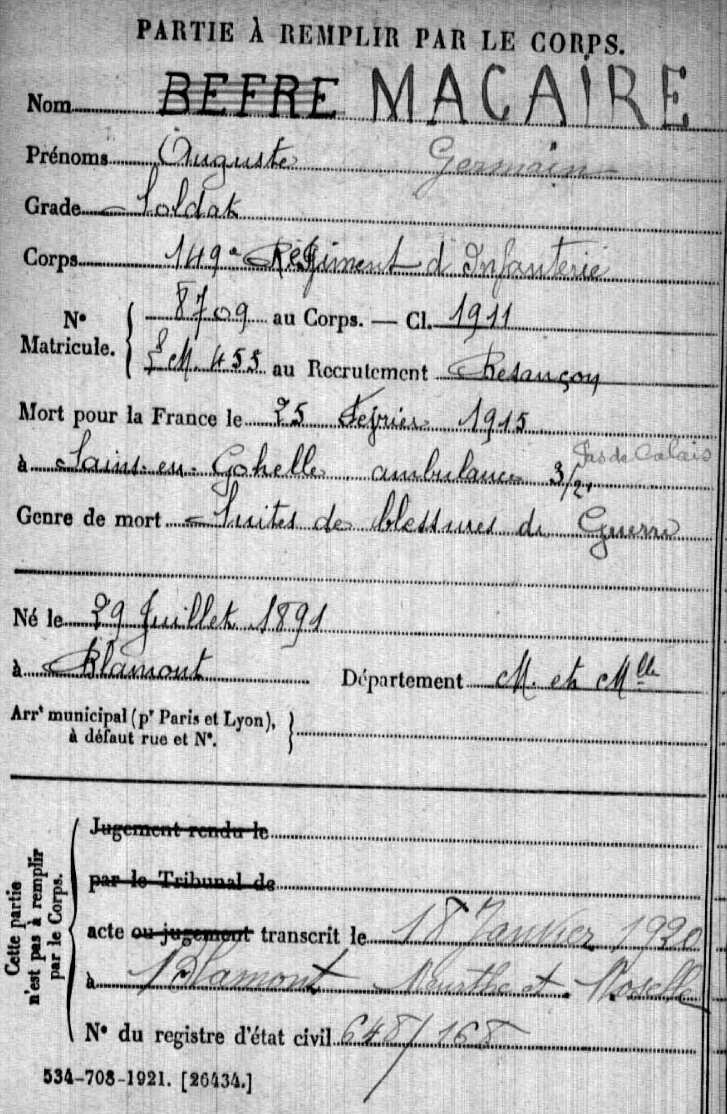 PARTIE À REMPLIR PAR LE CORPS.
Nom BEFRE MACAIRE
Prénoms Auguste Germain
Grade Soldat
Corps 149e Régiment d'Infanterie
N° Matricule. { 8709 au Corps. — Cl. 1911
M. 455 au Recrutement Besançon
Mort pour la France le 25 Février 1915
à Sains-en-Gohelle ambulance 3/21 Pas de Calais
Genre de mort Suites de blessures de Guerre
Né le 29 Juillet 1891
à Blamont Département M. et Mlle
Arrt municipal (pr Paris et Lyon), }
à défaut rue et N°.
Cette partie n'est pas à remplir par le Corps. {
Jugement rendu le
par le Tribunal de
acte ou jugement transcrit le 18 Janvier 1920
à Blamont Meurthe et Moselle
N° du registre d'état civil 648/168
534-708-1921. [26434.]